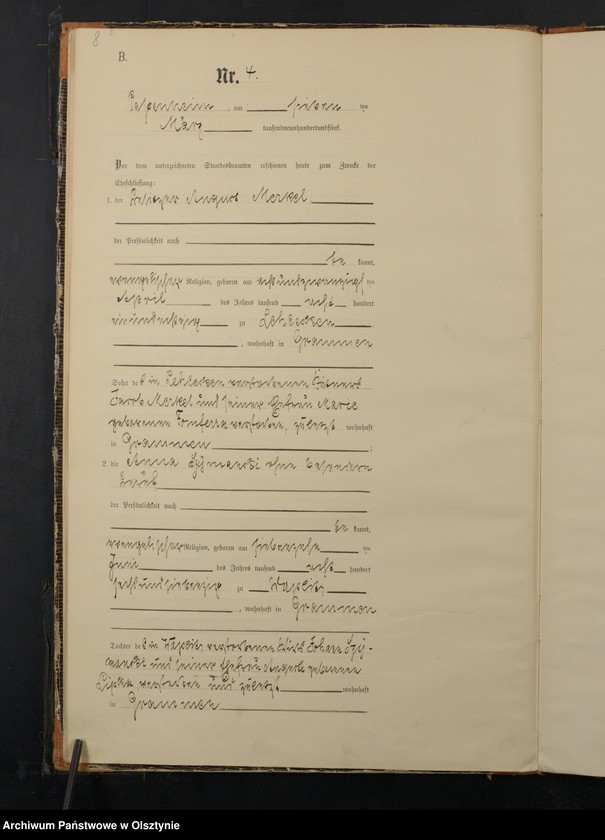 8
B.
Nr. 4.
am sieben ten
März tausendneunhundertundfünf.
Vor dem unterzeichneten Standesbeamten erschienen heute zum Zwecke der
Eheschließung:
1. der Besitzer August Merkel
der Persönlichkeit nach
be kannt,
evangelischer Religion, geboren am achtundzwanzigsten
April des Jahres tausend acht hundert
einundachtzig zu Lehlesken
, wohnhaft in Grammen
Sohn des in Lehlesken verstorbenen
Jacob Merkel und seiner Ehefrau Marie
geborenen verstorben, zuletzt wohnhaft
in Grammen ;
2. die Anna Szymanski ohne besonderen
Beruf
der Persönlichkeit nach
be kannt,
evangelischer Religion, geboren am siebenzehn ten
Juni des Jahres tausend acht hundert
sechsundsiebenzig zu Waplitz
, wohnhaft in Grammen
Tochter des in Waplitz verstorbenen Johann Szy-
manski und seiner Ehefrau Auguste geborenen
Lipka verstorben und zuletzt wohnhaft
in Grammen
Archiwum Państwowe w Olsztynie